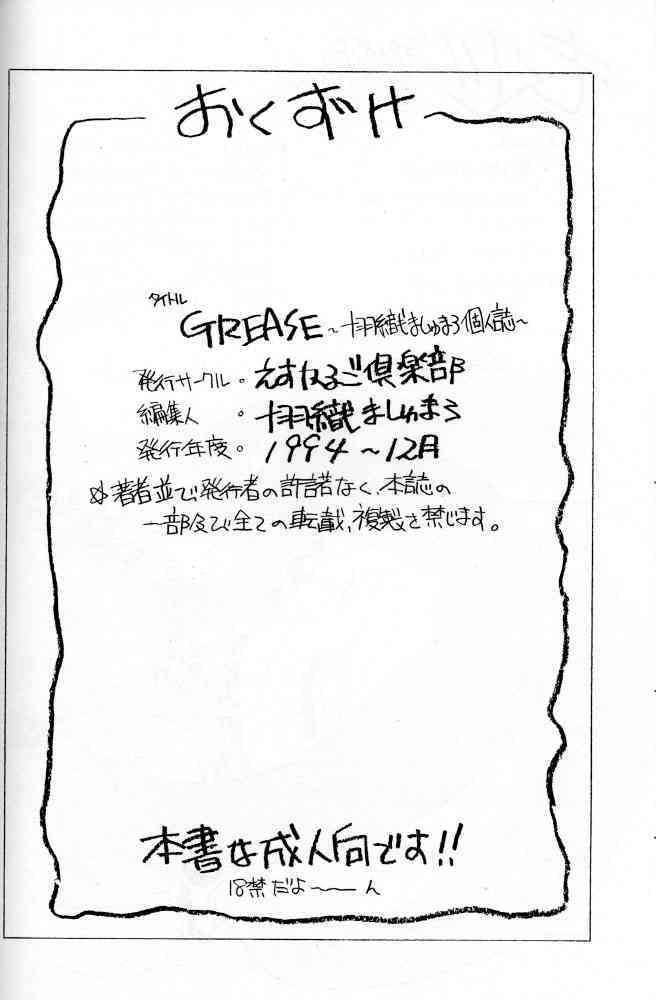 おくずけ
タイトル
GREASE ～羽織ましゅまろ個人誌～
発行サークル。えすねるご倶楽部
編集人 。羽織ましゅまろ
発行年度。1994～12月
著者並びに発行者の許諾なく、本誌の
一部及び全ての転載、複製を禁じます。
本書は成人向です!!
18禁だよ～ーーん